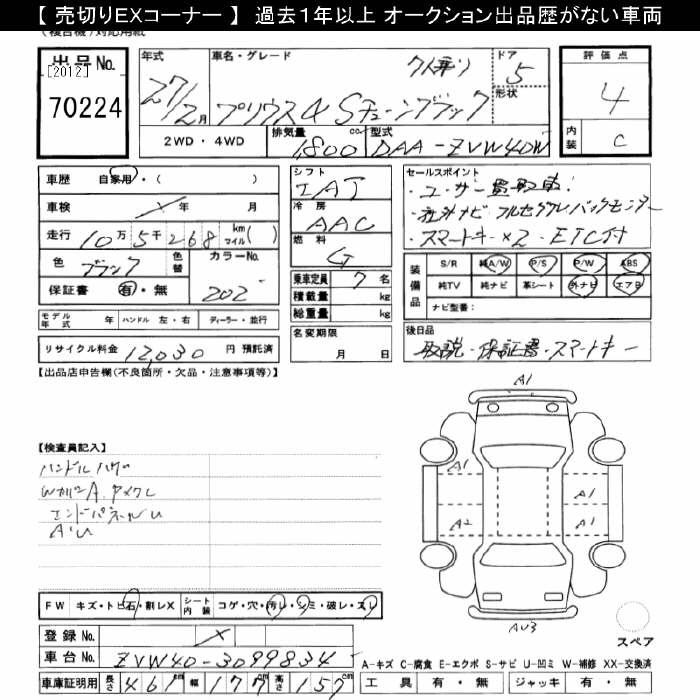 【 売切りEXコーナー 】 過去１年以上 オークション出品歴がない車両
出品No. [2012] 70224
年式 27/2月
車名・グレード 7人乗り プリウスα Sチューンブラック
ドア 5
形状
評価点 4
内装 C
2WD・4WD
排気量 1,800 cc
型式 DAA-ZVW40W
車歴 自家用・( )
車検 年 月
走行 10万5千268 km マイル( )
色 ブラック 色替 カラーNo. 202
保証書 有・無
モデル年式 年 ハンドル 左・右 ディーラー・並行
リサイクル料金 12,030 円 預託済
シフト IAT
冷房 AAC
燃料 G
乗車定員 7 名
積載量 kg
総重量 kg
名変期限
月 日
セールスポイント
・ユーザー買取車!
・社外ナビ フルセグTVバックモニター
・スマートキー×2・ETC付
装備品 S/R 純A/W P/S P/W ABS
純TV 純ナビ 革シート 外ナビ エアB
ナビ型番:
後日品
取説・保証書・スマートキー
【出品店申告欄(不良箇所・欠品・注意事項等)】
【検査員記入】
ハンドル
エンドパネルU
A・U
A1
A1
A1
A2
A1
AU3
スペア
FW キズ・トビ石・割レX シート内装 コゲ・穴・汚レ・シミ・破レ・スレ
登録No.
車台No. ZVW40-3099834
車庫証明用 長さ 461 cm 幅 177 cm 高さ 157 cm
A-キズ C-腐食 E-エクボ S-サビ U-凹ミ W-補修 XX-交換済
工具 有・無 ジャッキ 有・無